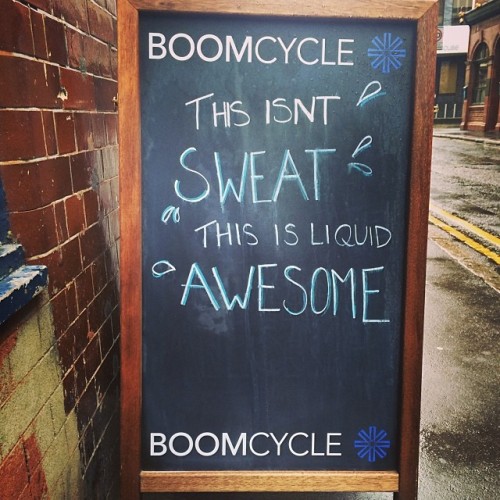 BOOMCYCLE
THIS ISNT
SWEAT
THIS IS LIQUID
AWESOME
BOOMCYCLE